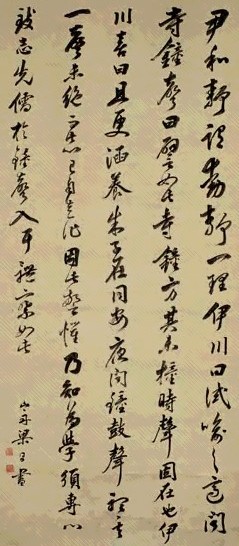 尹和靜謂動靜一理伊川曰試喻之適聞
寺鐘聲曰譬如此寺鐘方其未撞時聲固在也伊
川喜曰且更涵養朱子在同安夜聞鐘鼓聲聽其
一聲未絕此心已自走作因此警懼乃知為學須專心
致志先儒於鐘聲入耳體察如此
山舟梁同書